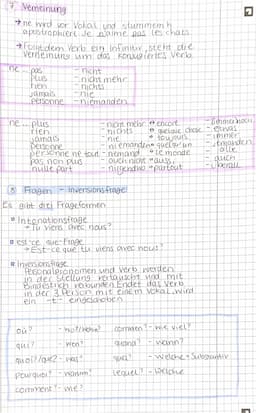 7 Verneinung
→ ne wird vor Vokal und stummem h
apostrophiert Je n'aime pas les chats
→ Folgt dem Verb ein Infinitiv, steht die
Verneinung um das konjugierte Verb.
ne... pas - nicht
plus - nicht mehr
rien - nichts
jamais - nie
personne - niemanden
ne... plus - nicht mehr encore - immer noch
rien - nichts quelque chose - etwas
jamais - nie toujours - immer
personne - niemanden quelqu'un - jemanden
personne ne tout - niemand le monde - alle
pas non plus - auch nicht aussi - auch
nulle part - nirgendwo partout - überall
8 Fragen - Inversionsfrage
Es gibt drei Frageformen
Intonationsfrage
→ Tu viens avec nous?
est-ce que-Frage
→ Est-ce que tu viens avec nous?
Inversionsfrage
Personalpronomen und Verb werden
in der Stellung vertauscht und mit
Bindestrich verbunden. Endet das Verb
in der 3. Person mit einem Vokal, wird
ein -t- eingeschoben
où? - wo?/wohin? combien? - wie viel?
qui? - wen? quand? - wann?
quoi?/que? - was? quel? - welche + Substantiv
pourquoi? - warum? lequel? - welche
comment? - wie?